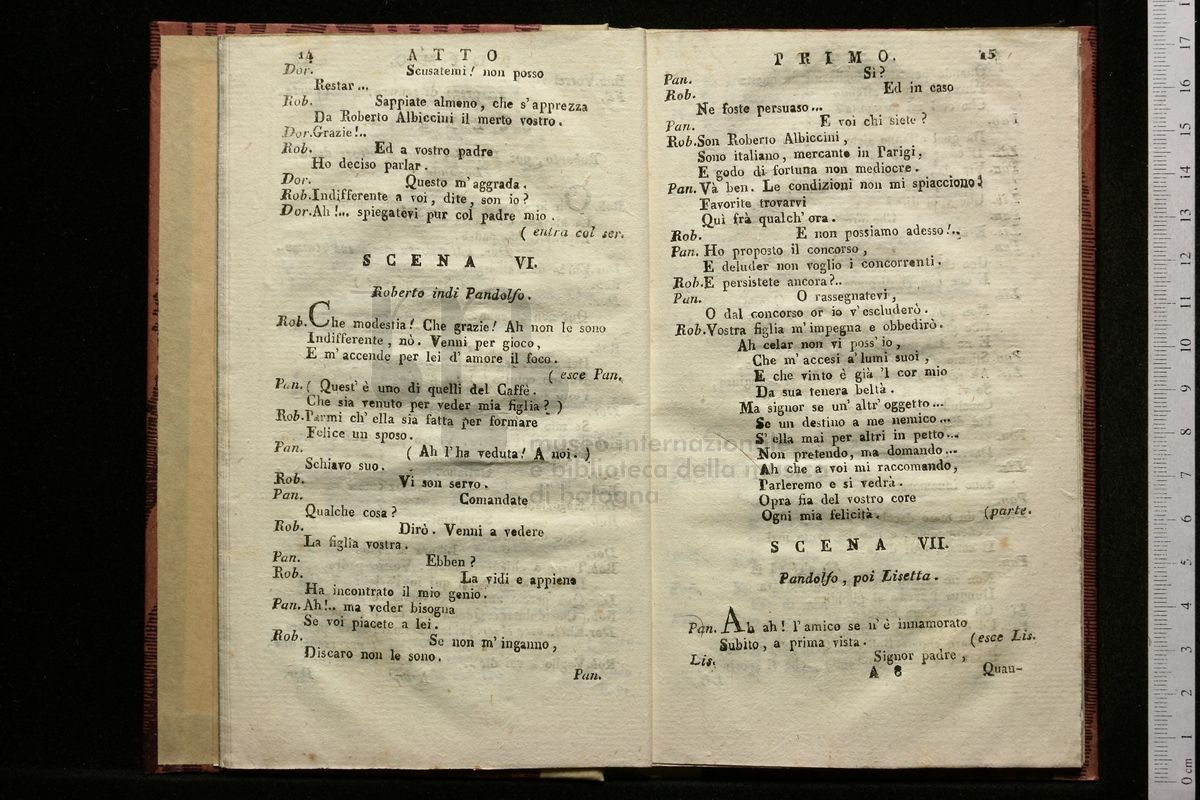 14 ATTO
Dor. Scusatemi! non posso
Restar...
Rob. Sappiate almeno, che s'apprezza
Da Roberto Albiccini il merto vostro.
Dor. Grazie!..
Rob. Ed a vostro padre
Ho deciso parlar.
Dor. Questo m'aggrada.
Rob. Indifferente a voi, dite, son io?
Dor. Ah!... spiegatevi pur col padre mio.
( entra col ser.
SCENA VI.
Roberto indi Pandolfo.
Rob. Che modestia! Che grazie! Ah non le sono
Indifferente, nò. Venni per gioco,
E m'accende per lei d'amore il foco.
( esce Pan.
Pan. ( Quest'è uno di quelli del Caffè.
Che sia venuto per veder mia figlia? )
Rob. Parmi ch'ella sia fatta per formare
Felice un sposo.
Pan. ( Ah l'ha veduta! A noi. )
Schiavo suo.
Rob. Vi son servo.
Pan. Comandate
Qualche cosa?
Rob. Dirò. Venni a vedere
La figlia vostra.
Pan. Ebben?
Rob. La vidi e appieno
Ha incontrato il mio genio.
Pan. Ah!.. ma veder bisogna
Se voi piacete a lei.
Rob. Se non m'inganno,
Discaro non le sono.
Pan.
PRIMO. 15
Pan. Sì?
Rob. Ed in caso
Ne foste persuaso...
Pan. E voi chi siete?
Rob. Son Roberto Albiccini,
Sono italiano, mercante in Parigi,
E godo di fortuna non mediocre.
Pan. Và ben. Le condizioni non mi spiacciono:
Favorite trovarvi
Quì frà qualch'ora.
Rob. E non possiamo adesso!..
Pan. Ho proposto il concorso,
E deluder non voglio i concorrenti.
Rob. E persistete ancora?..
Pan. O rassegnatevi,
O dal concorso or io v'escluderò.
Rob. Vostra figlia m'impegna e obbedirò.
Ah celar non vi poss'io,
Che m'accesi a'lumi suoi,
E che vinto è già 'l cor mio
Da sua tenera beltà.
Ma signor se un'altr'oggetto...
Se un destino a me nemico...
S'ella mai per altri in petto...
Non pretendo, ma domando...
Ah che a voi mi raccomando,
Parleremo e si vedrà.
Opra fia del vostro core
Ogni mia felicità. (parte.
SCENA VII.
Pandolfo, poi Lisetta.
Pan. Ah ah! l'amico se n'è innamorato
Subito, a prima vista. (esce Lis.
Lis. Signor padre,
A 8 Quan-
museo internazionale
e biblioteca della m
di bologna
0 cm 1 2 3 4 5 6 7 8 9 10 11 12 13 14 15 16 17